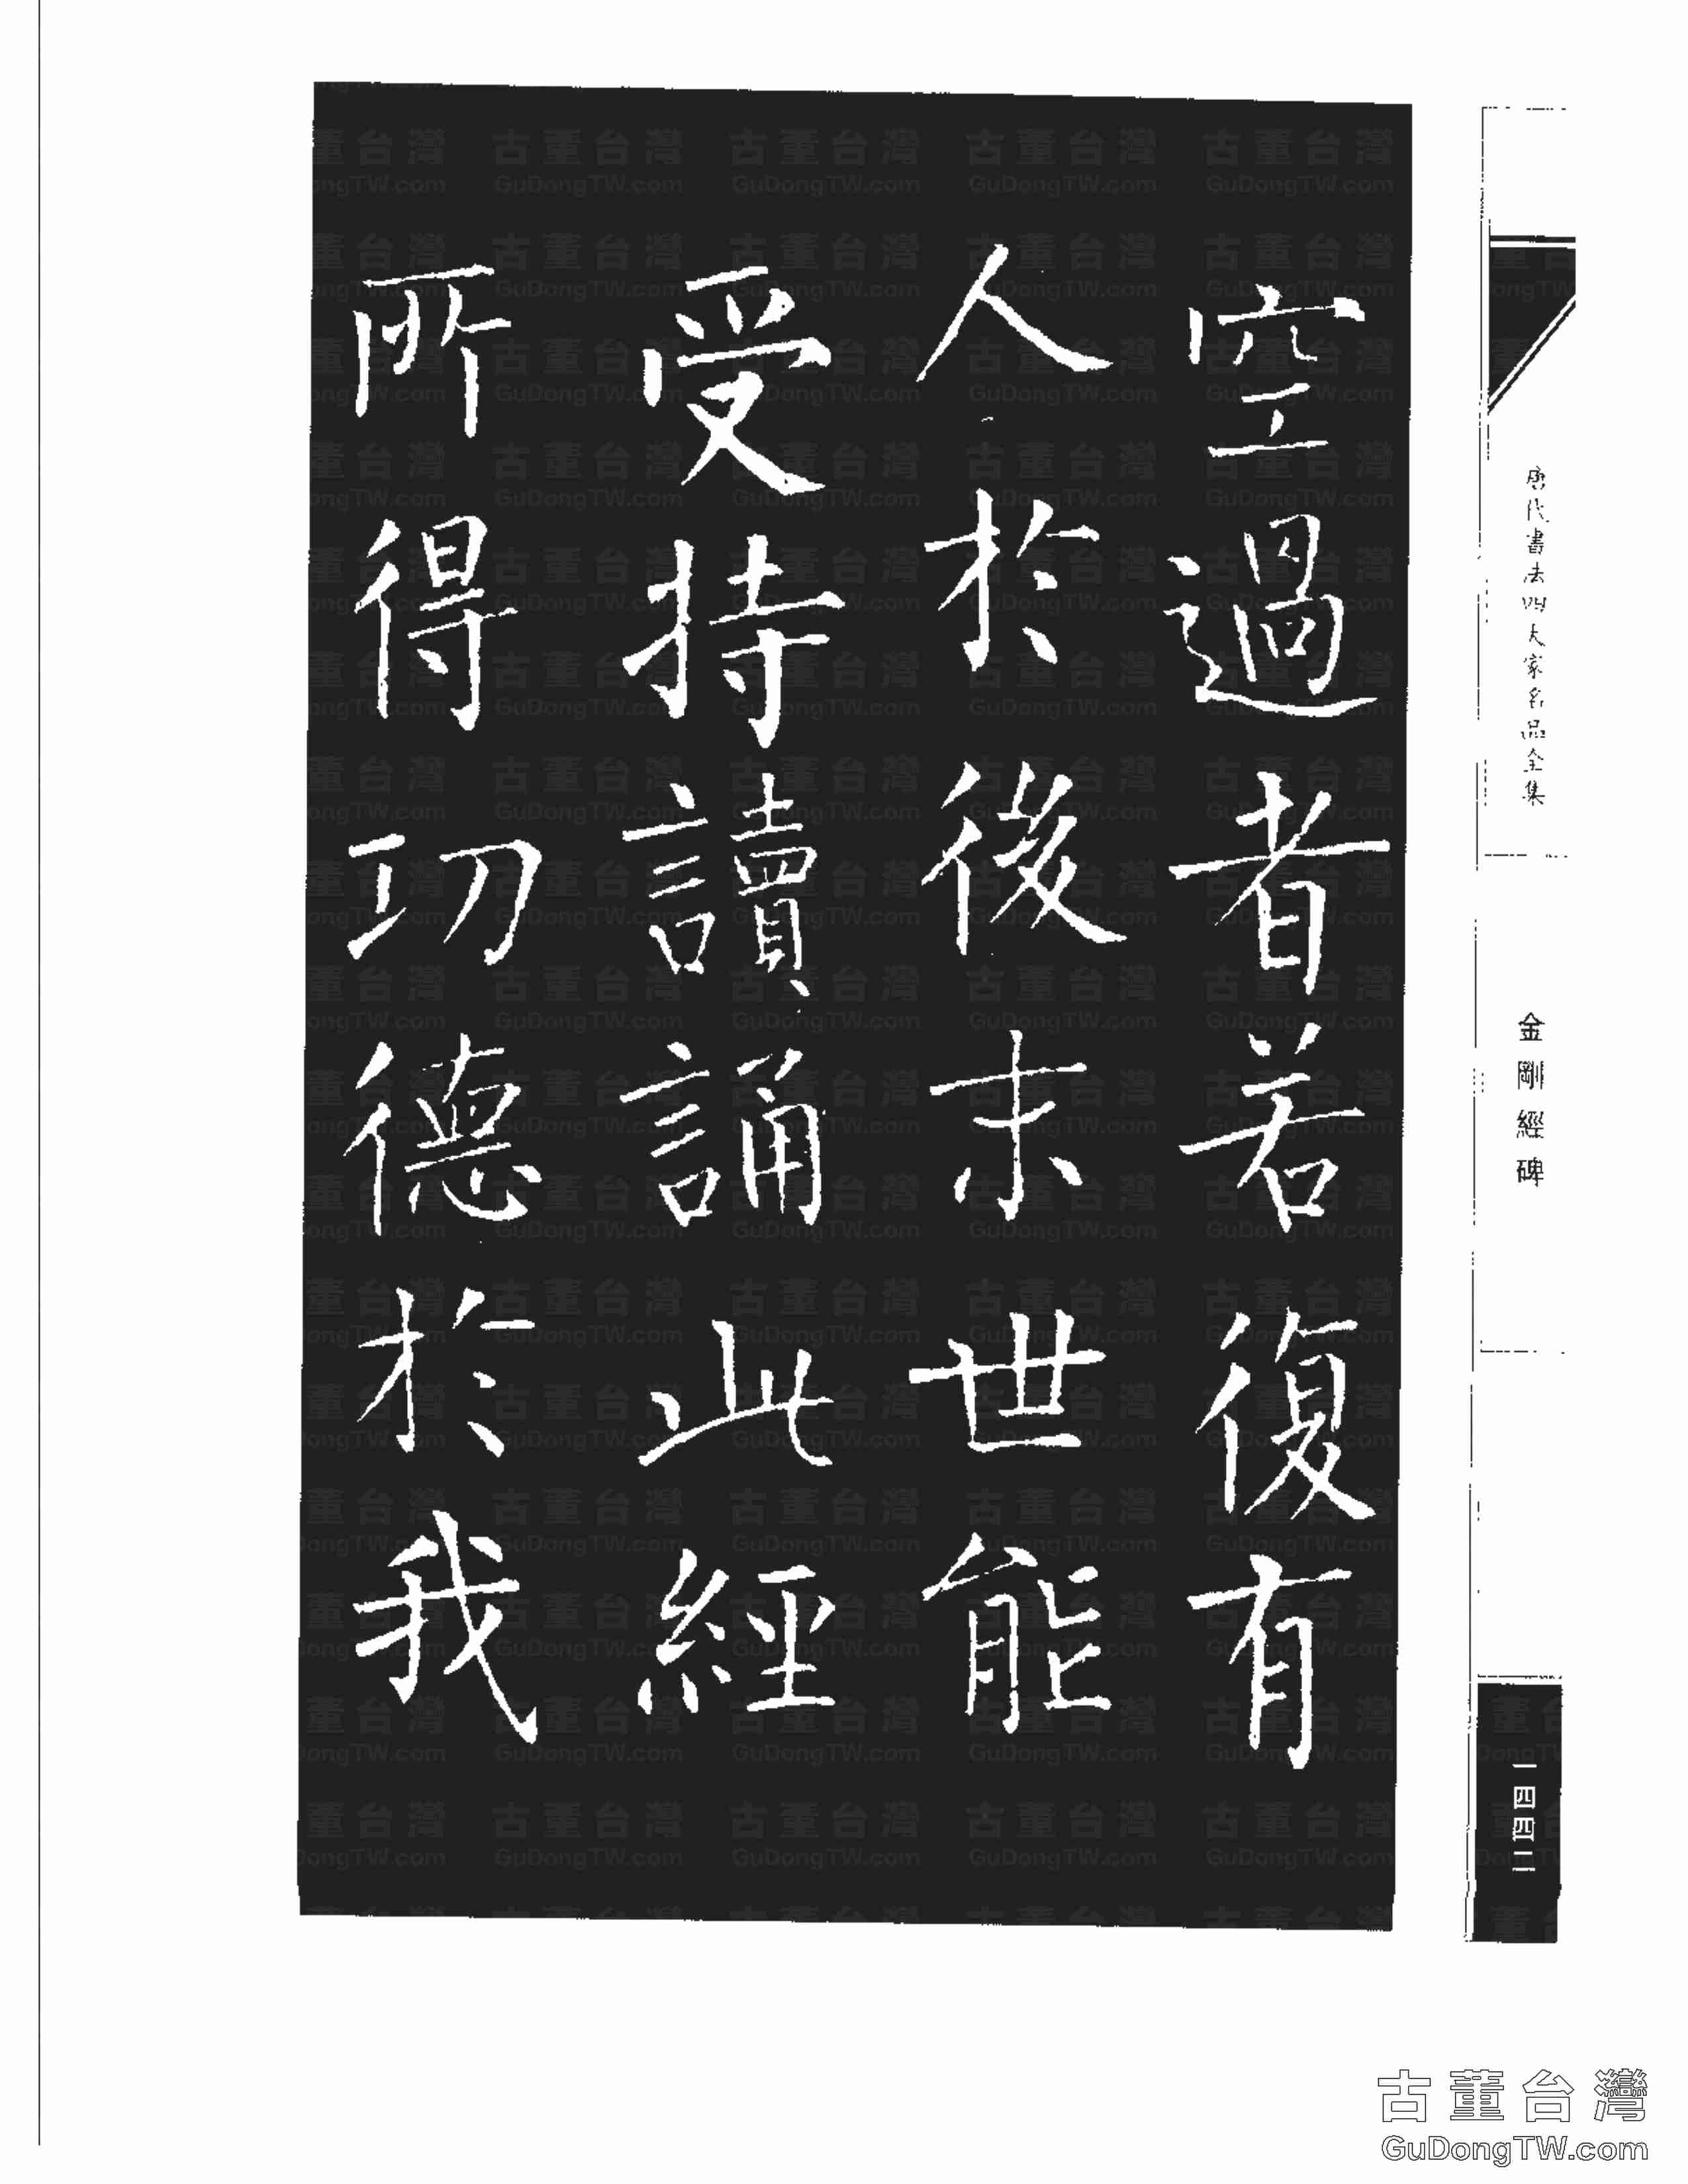 空過者若復有
人於後末世能
受持讀誦此經
所得功德於我
唐代書法四大家名品全集
金剛經碑
一四四二
古董台灣
GuDongTW.com